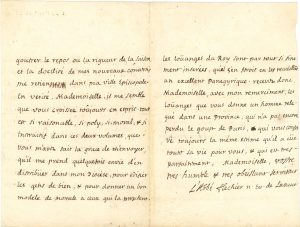 gouttrer le repos ou la rigueur de la saison
et la docilité de mes nouveaux convertis
me retiennent dans ma ville Episcopale.
En verité, Mademoiselle, il me semble
que vous croissez toujours en esprit. tout
est si raisonable, si poly, si moral, & si
instructif dans ces deux volumes que
vous m'avez fait la grace de m'envoyer,
qu'il me prend quelquefois envie d'en
distribuer dans mon Diocese, pour edifier
les gens de bien, & pour donner un bon
modele de morale a ceux qui la preschent.
les louanges du Roy sont par tout si fine-
ment insérées, qu'il s'en feroit en les recueillant
un excellent Panegyrique. recevez donc,
Mademoiselle, avec mon remerciment, les
louanges que vous donne un homme relé-
gué dans une Province, qui n'a pas encore
perdu le goust de Paris, & qui vous conser-
ve toujours la mesme estime qu'il a eüe
toute sa vie pour vous, & qui est tres-
parfaitement, Mademoiselle, vostre
tres humble & tres obeissant serviteur
L'Abbé Flechier n. Ev. de Lavaur